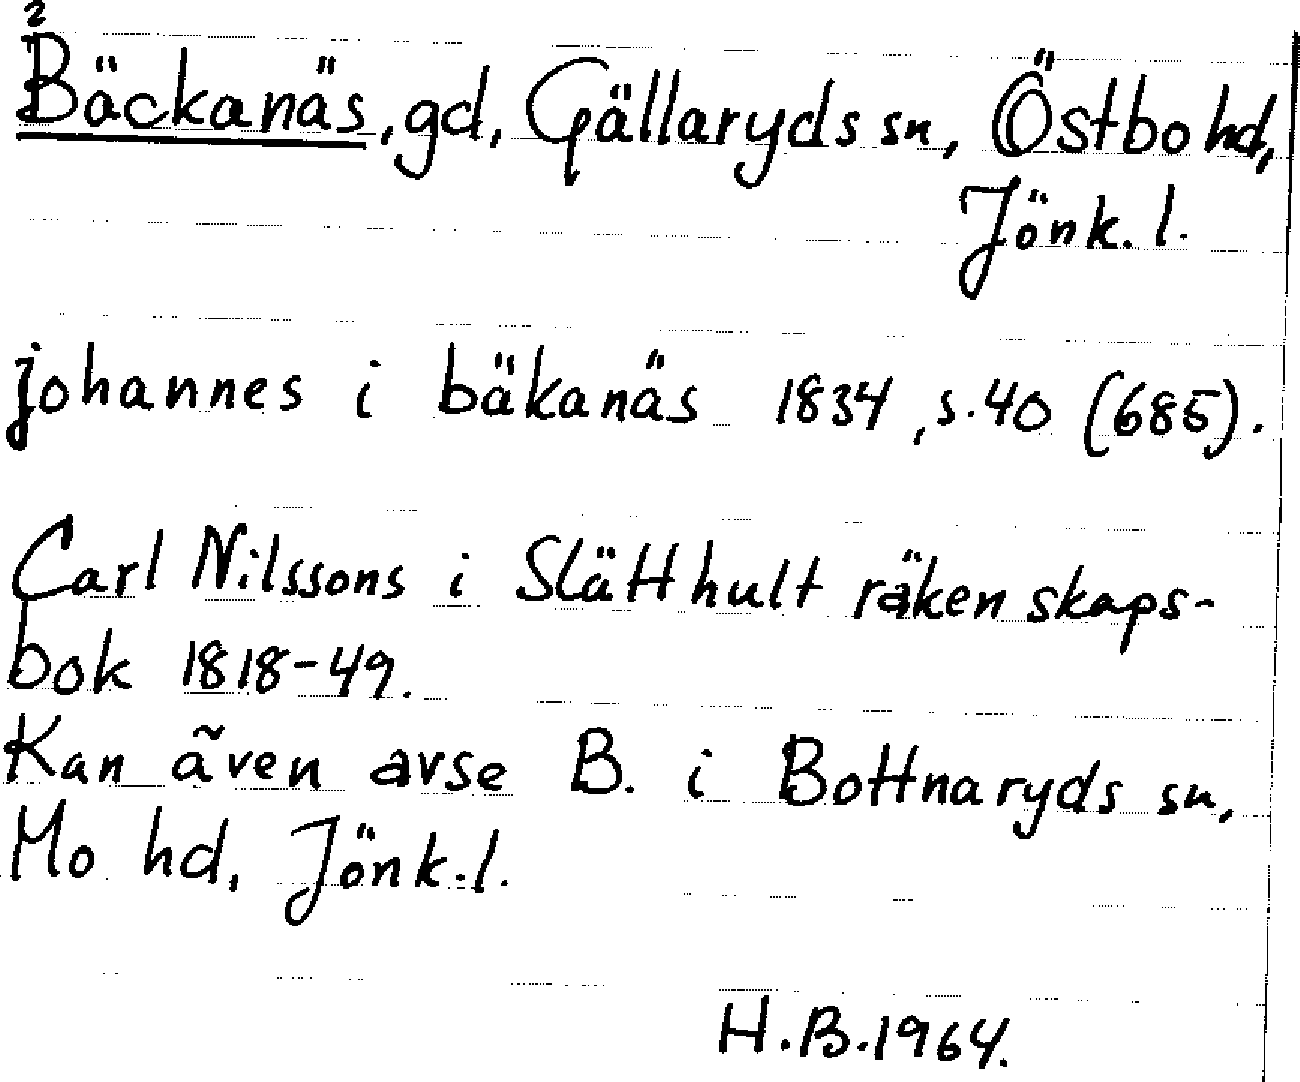 2
Bäckanäs, gd, Gällaryds sn, Östbo hd,
Jönk. l.
johannes i bäkanäs 1834, s. 40 (685).
Carl Nilssons i Slätthult räkenskaps-
bok 1818-49.
Kan även avse B. i Bottnaryds sn,
Mo hd, Jönk. l.
H.B. 1964.